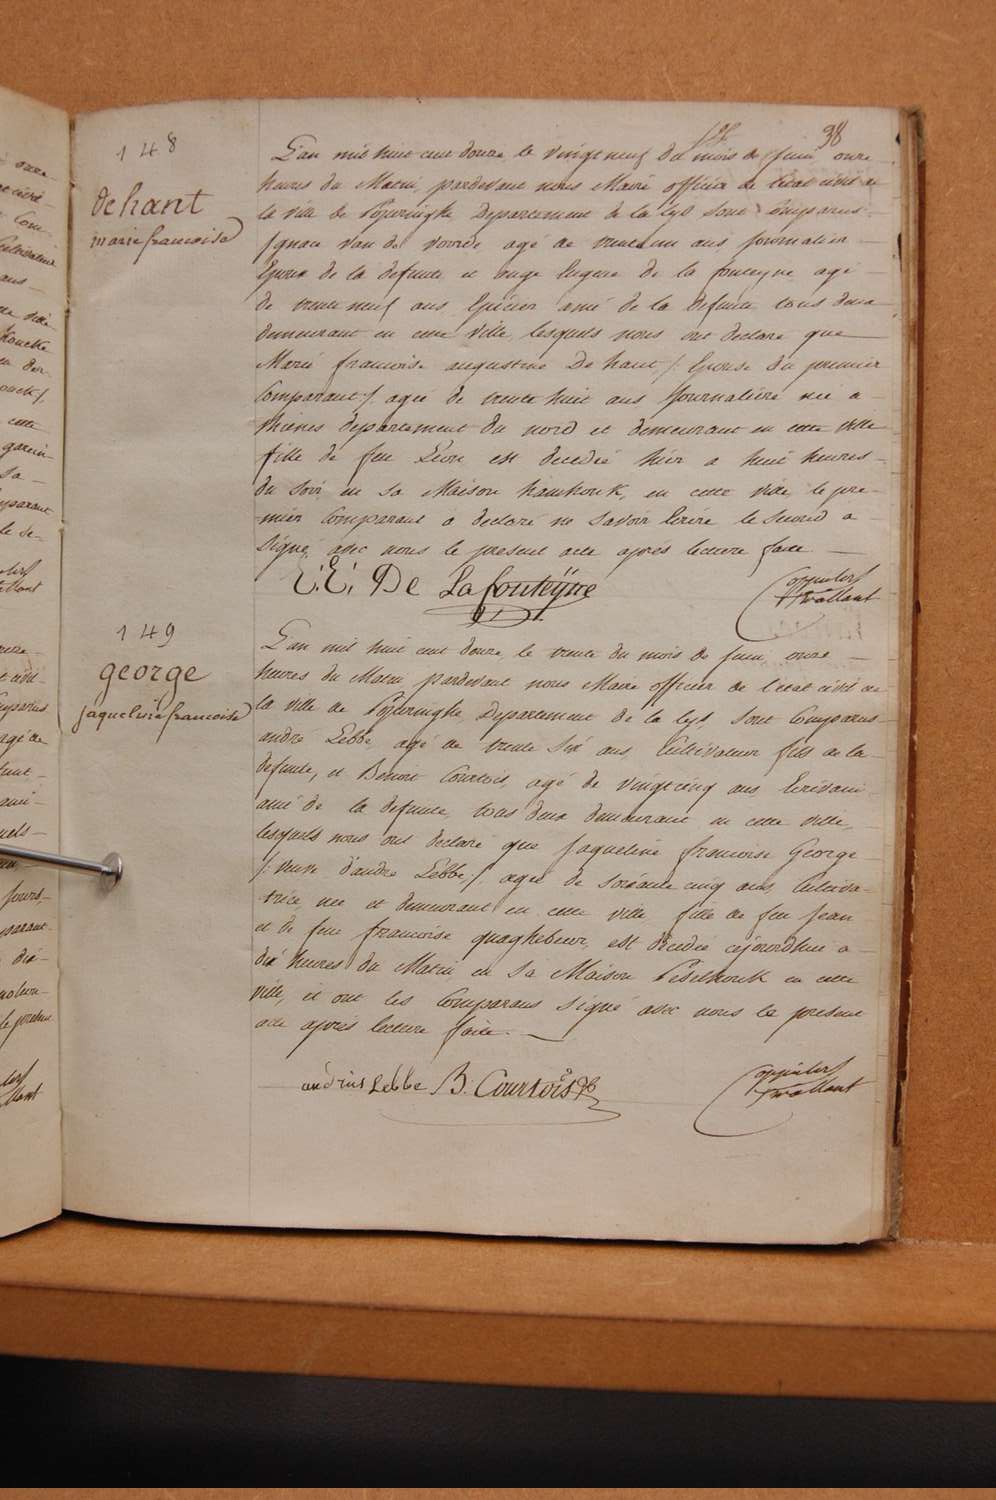 38
148
dehant
marie francoise
L'an mil huit cent douze le vingt neuf du mois de juin, onze
heures du Matin, pardevant nous Maire officier de l'etat civil de
la ville de Poperinghe Departement de la Lys sont Comparus
Ignace van de voorde agé de trente un ans Journalier
Epoux de la defunte et ange Eugene de la fonteyne agé
de trente neuf ans Epicier ami de la defunte tous deux
demeurant en cette ville, lesquels nous ont declaré que
Marie francoise augustine De hant /: Epouse du premier
Comparant /: agée de trente huit ans Journaliere née a
département du nord et demeurant en cette ville
fille de feu Léon est decedée hier a huit heures
du soir, en sa Maison hamhouk, en cette ville, le pre-
mier Comparant a declaré ne savoir Ecrire le second a
Signé, avec nous le present acte après lecture faite
E. De La fonteÿne
149
george
jaqueline francoise
L'an mil huit cent douze, le trente du mois de Juin, onze
heures du Matin pardevant nous Maire officier de l'etat civil de
la ville de Poperinghe Departement de la Lys sont Comparus
andré Lebbe, agé de trente Six ans, Cultivateur fils de la
defunte, et Benoit Courtois, agé de vingt cinq ans, Ecrivain
ami de la defunte, tous deux demeurant en cette ville,
lesquels nous ont declaré que Jaqueline francoise George
/: veuve d'andré Lebbe, /: agée de soixante cinq ans Cultiva-
trice née et demeurant en cette ville fille de feu Jean
et de feue francoise quaghebeur, est decedée cejourdhui a
dix heures du Matin en Sa Maison Peselhouk en cette
ville, et ont les Comparans signé avec nous le present
acte après lecture faite.
andrius Lebbe B. Courtois